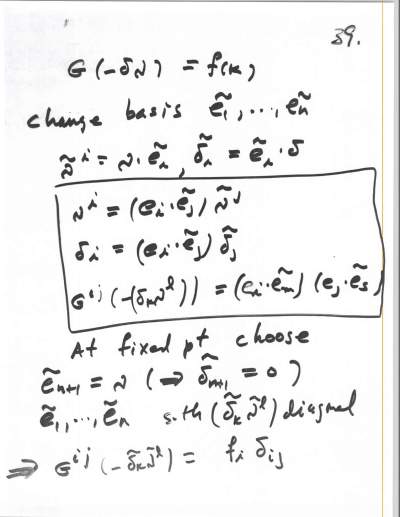 39.
G(-δν) = f(κ)
change basis ẽ₁, ..., ẽₙ
ν̃ⁱ = ν·ẽᵢ, δ̃ᵢ = ẽᵢ·δ
νⁱ = (eᵢ·ẽⱼ) ν̃ʲ
δᵢ = (eᵢ·ẽⱼ) δ̃ⱼ
Gⁱʲ(-(δₖνˡ)) = (eᵢ·ẽₘ)(eⱼ·ẽₛ)
At fixed pt choose
ẽₙ₊₁ = ν (⇒ δ̃ₙ₊₁ = 0)
ẽ₁, ..., ẽₙ s.th (δ̃ₖ ν̃ˡ) diagonal
⇒ Gⁱʲ(-δ̃ₖν̃ˡ) = fᵢ δᵢⱼ